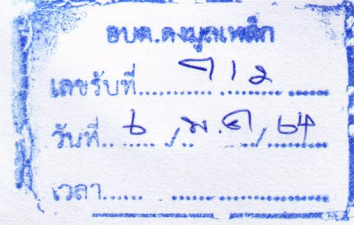 อบต.ดงมูลเหล็ก
เลขรับที่
วันที่.. ๖ / ม.ค / ๖๔
เวลา